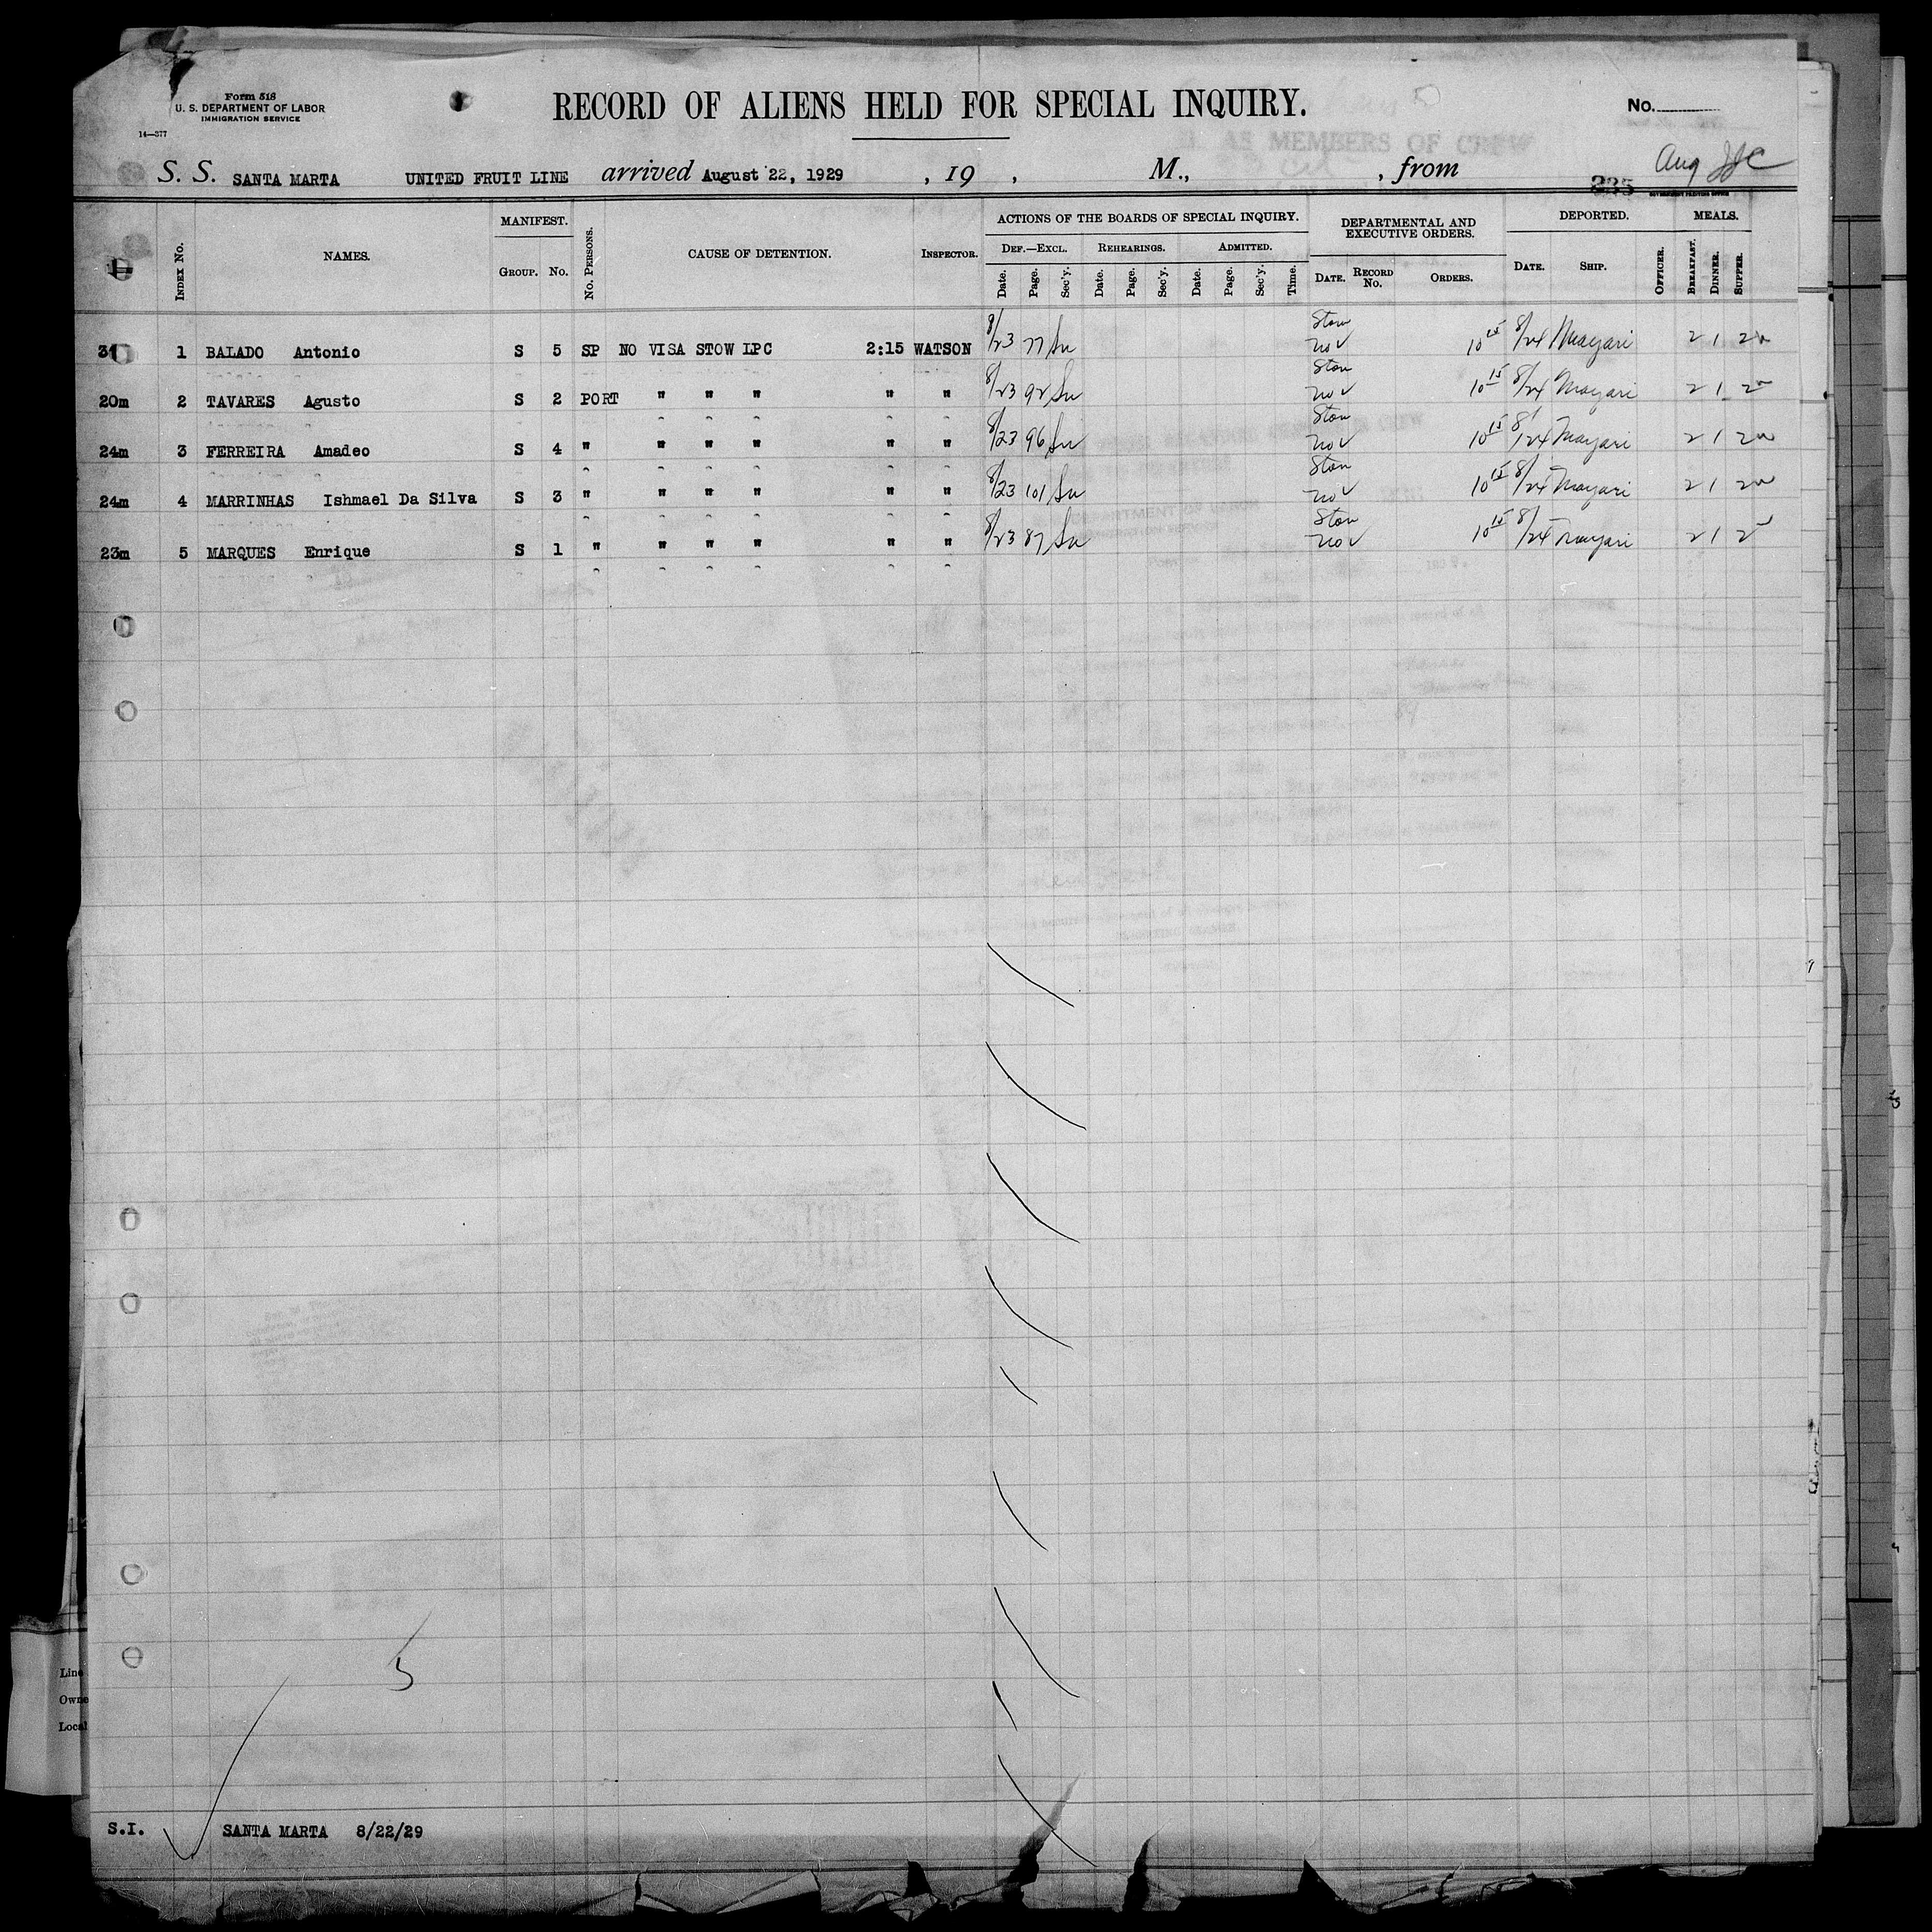 Form 518
U. S. DEPARTMENT OF LABOR
IMMIGRATION SERVICE
14—377
RECORD OF ALIENS HELD FOR SPECIAL INQUIRY.
No.
AS MEMBERS OF CREW
S. S. SANTA MARTA UNITED FRUIT LINE arrived August 22, 1929 , 19 , M., , from
235
Aug
GOVERNMENT PRINTING OFFICE
INDEX NO. NAMES. MANIFEST. GROUP. NO. NO. PERSONS. CAUSE OF DETENTION. INSPECTOR. ACTIONS OF THE BOARDS OF SPECIAL INQUIRY. DEPARTMENTAL AND EXECUTIVE ORDERS. DEPORTED. MEALS.
DEF.—EXCL. REHEARINGS. ADMITTED.
Date. Page. Sec'y. Date. Page. Sec'y. Date. Page. Sec'y. Time. DATE. RECORD NO. ORDERS. DATE. SHIP. OFFICER. BREAKFAST. DINNER. SUPPER.
31 1 BALADO Antonio S 5 SP NO VISA STOW LPC 2:15 WATSON 8/23 77 Stow nov 8/24 Mayari 2 1 2
20m 2 TAVARES Agusto S 2 PORT " " " " " 8/23 92 Stow nov 10 15 8/24 Mayari 2 1 2
24m 3 FERREIRA Amadeo S 4 " " " " " " 8/23 96 Stow nov 10 15 8/24 Mayari 2 1 2
24m 4 MARRINHAS Ishmael Da Silva S 3 " " " " " " 8/23 101 Stow nov 10 15 8/24 Mayari 2 1 2
23m 5 MARQUES Enrique S 1 " " " " " " 8/23 87 Stow nov 10 15 8/24 Mayari 2 1 2
5
Line
Owne
Local
S.I. SANTA MARTA 8/22/29